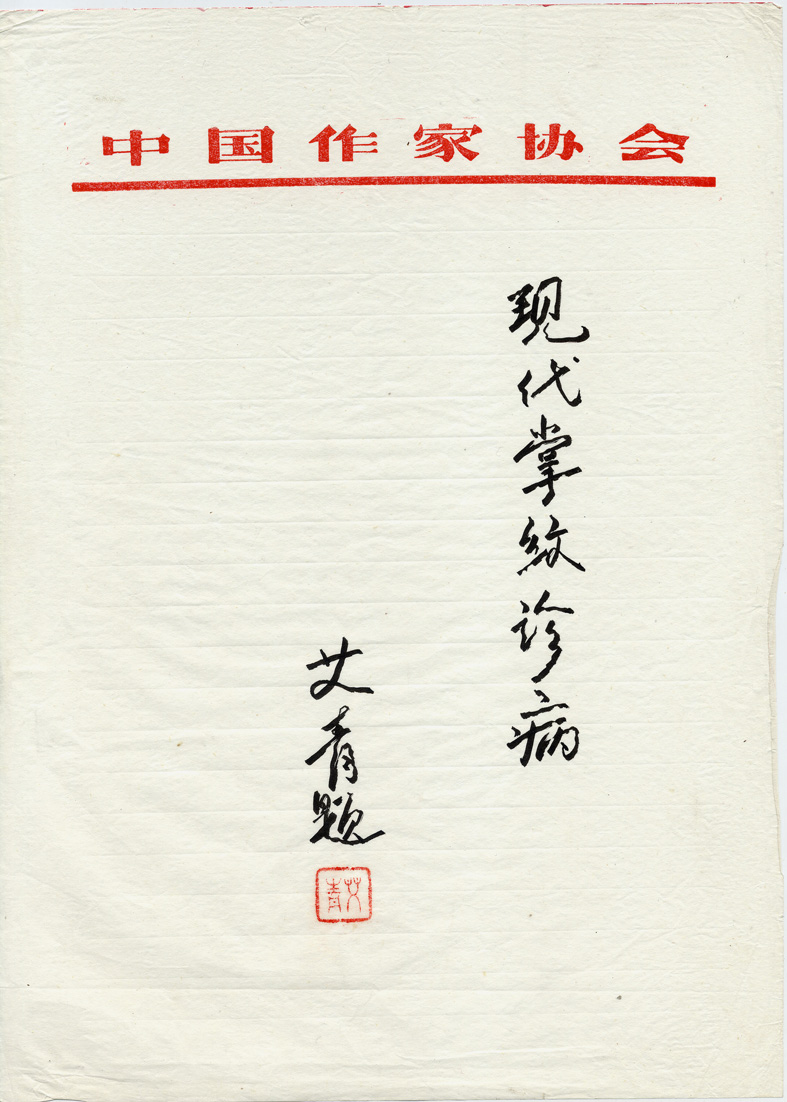 中国作家协会
现代掌纹诊病
艾青题
艾青